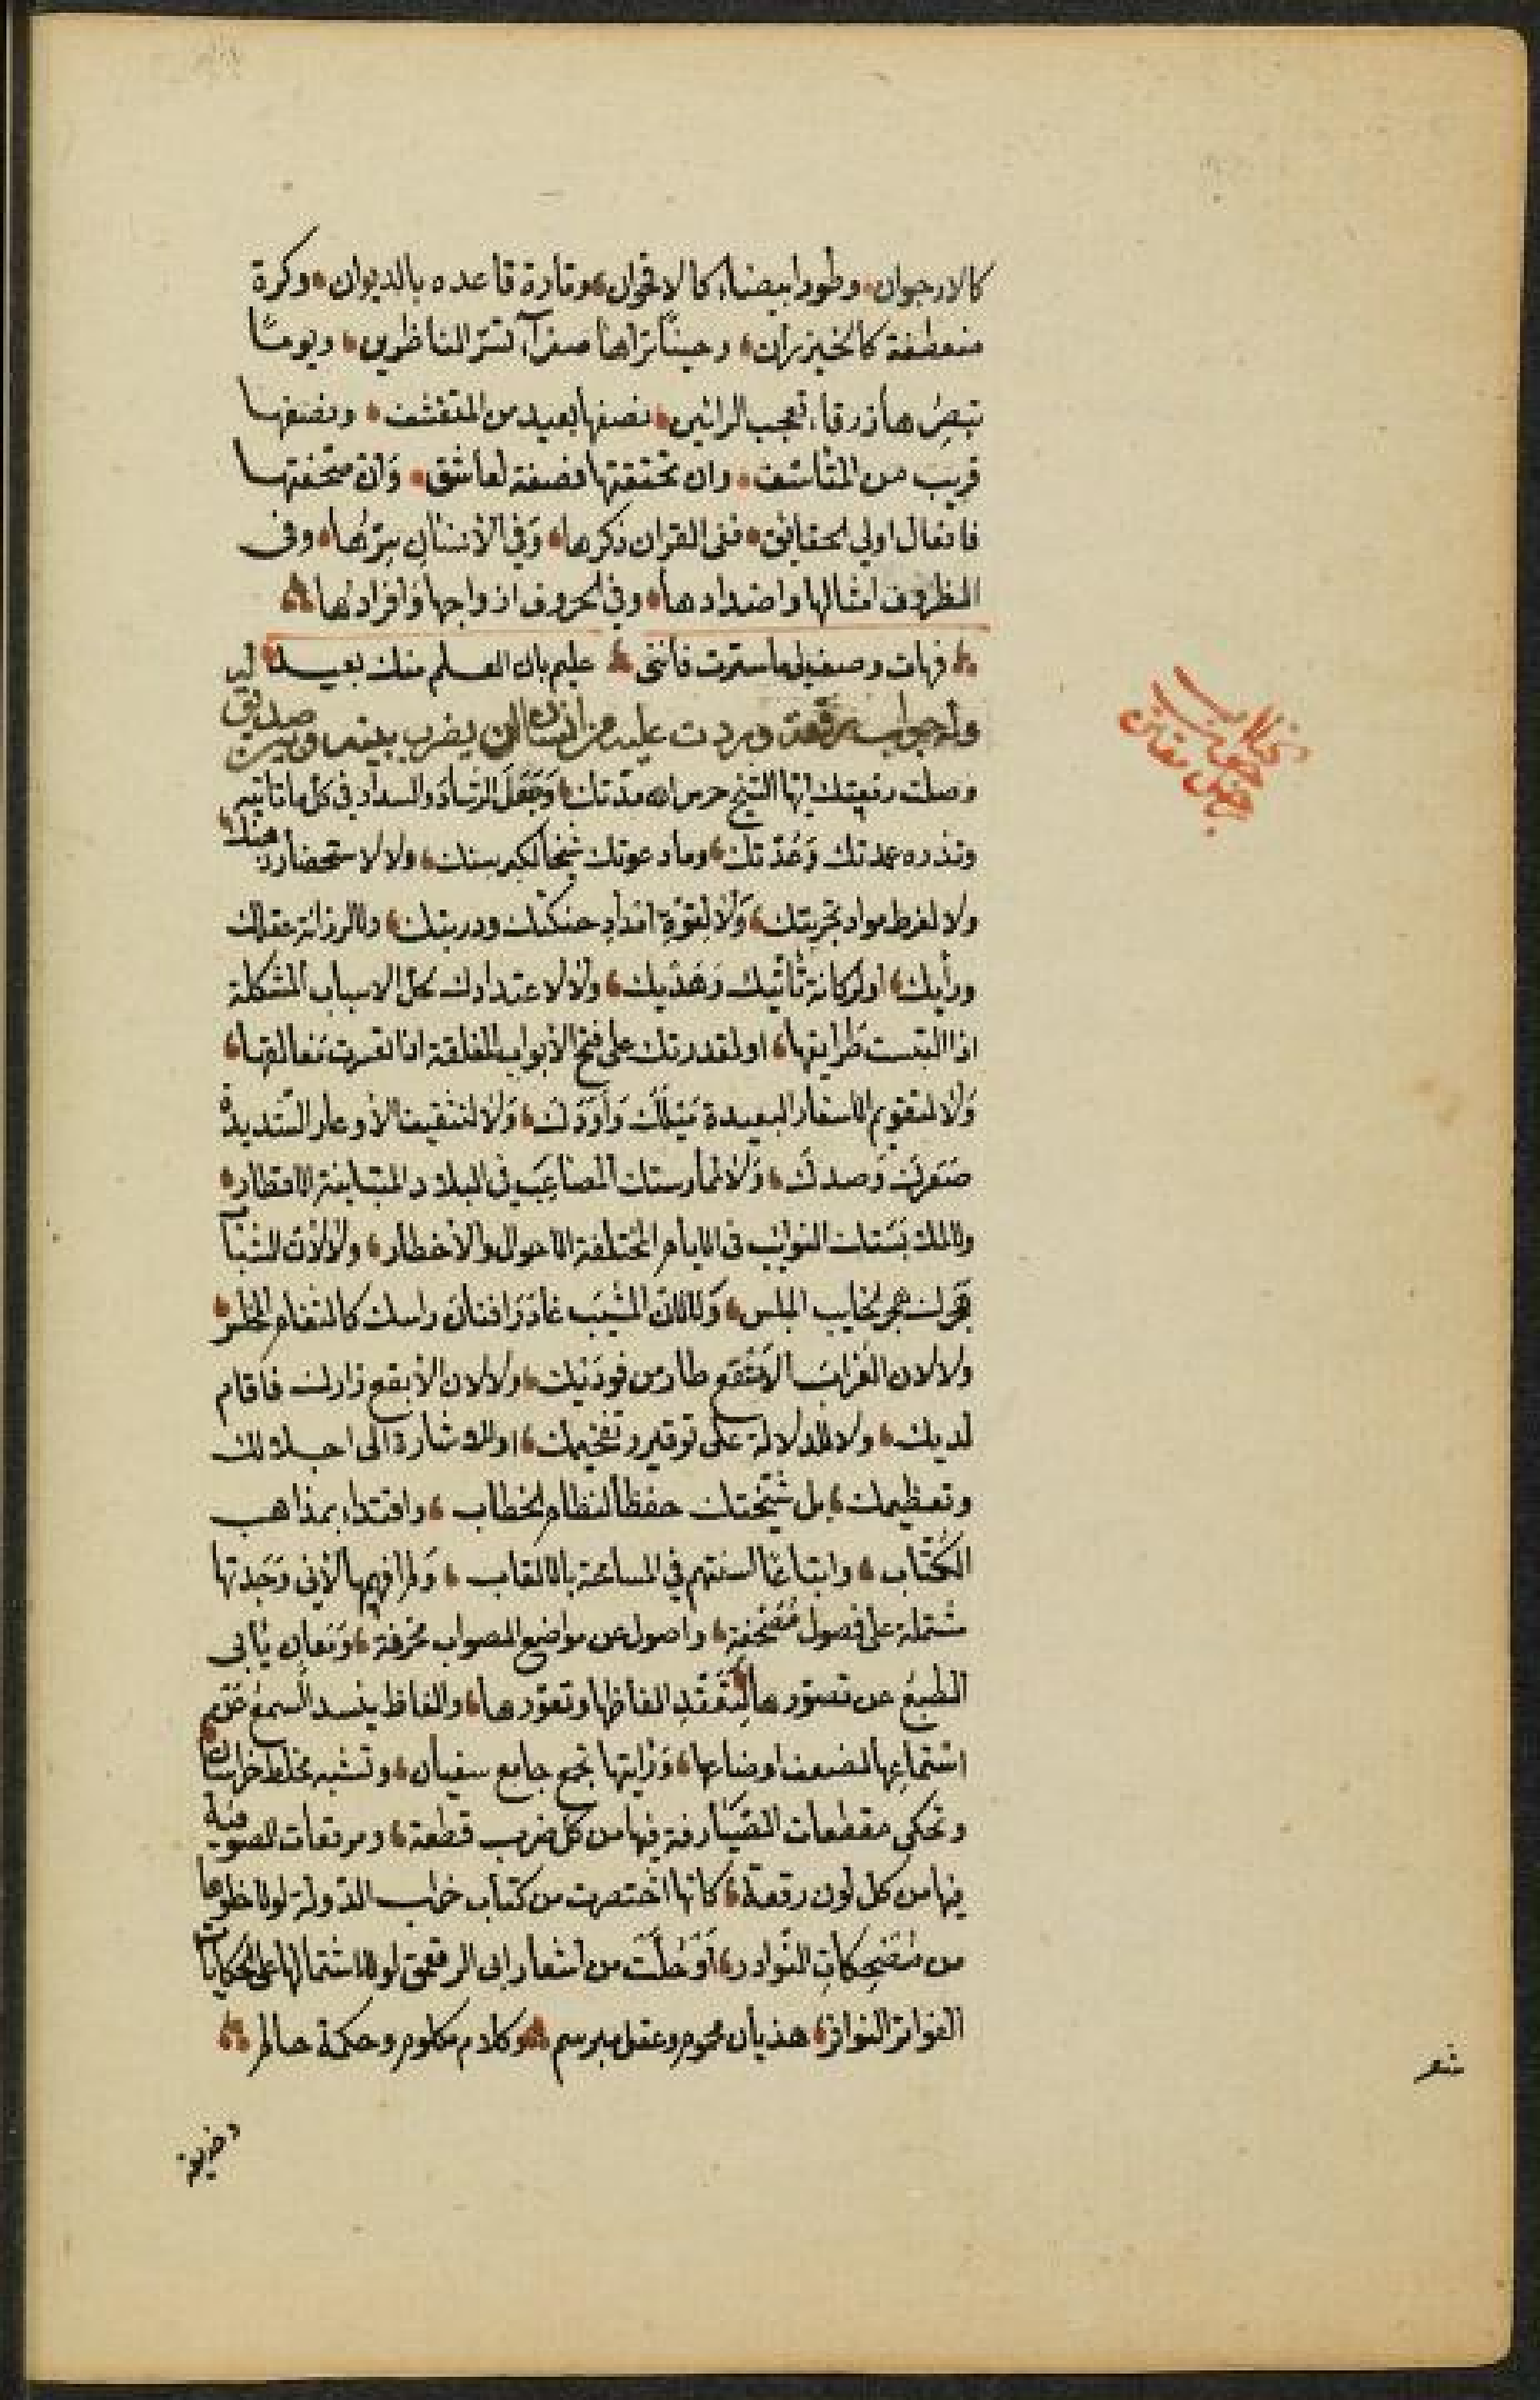 كالارجوان وطورا بيضاء كالاقحوان وتارة قاعده بالديوان وكرة
منعطفة كالخيزران وحينًا تراها صفرآء تسر الناظرين ويومًا
تبصرها زرقاء تعجب الرائين نصفها بعيد من المتقشف ونصفها
قريب من المتأسف وان تحققتها فصفة لعاشق وان صحفتها
فانفال اولي الحقائق ففي القران ذكرها وفي الأنسان سرّها وفي
الظروف امثالها واضدادها وفي الحروف ازواجها وافرادها
فهات وصف لي ما سترت فانني عليم بان العلم منك بعيد
وله جواب رقعة وردت عليه من انسان يضرب بينه وبين صديق
وصلت رقعتك ايها الشيخ حرس الله مدّتك وجعل الرشاد والسداد في كل ما تاتيه
وتذره عمدتك وعُدّتك وما دعوتك شيخا لكبر سنك ولا لاستحضار منك
ولا لفرط مواد تجربتك ولا لقوّة امداد حنكتك ودربتك ولا لرزانة عقلك
ورأيك او لركانة تأتيك وهديك ولا لاعتدادك لحل الاسباب المشكلة
اذا التبست طرايقها او لقدرتك على فتح الأبواب المغلقة اذا تعسرت مغالقها
ولا لتقويم الاسفار البعيدة ميلك وأودك ولا لتثقيف الأوعار الشديدة
صعرك وصدك ولا لممارستك المصاعب في البلاد المتباينة الاقطار
ولا لملابستك النوايب في الايام المختلفة الاحوال والاخطار ولا لأن الشباب
هجرك هجر الخايب المبلس ولا لان المشيب غادر افنان راسك كالثغام المخلس
ولا لان الغراب الابقع طار من فوديك ولا لان الأبقع زارك فاقام
لديك ولا للدلالة على توقيرك وتفخيمك او للاشارة الى اجلالك
وتعظيمك بل شيّختك حفظا لنظام الخطاب واقتداء بمذاهب
الكتّاب واتباعًا لسنتهم في المسامحة بالالقاب ولم افهمها لأني وجدتها
مشتملة على فصول مضحفة واصول عن مواضع الصواب محرفة ومعان يأبى
الطبع عن تصوّرها لتعقد الفاظها وتعوّرها والفاظ ينسد السمع عن
استماعها لضعف اوضاعها ورأيتها تجمع جامع سفيان وتشبه مخلط خراسان
وتحكي مقطعات الصيارفة فيها من كل ضرب قطعة ومرقعات الصوفية
فيها من كل لون رقعة كانها اختصرت من كتاب خراب الدولة لولا خلوها
من مضحكات النوادر او حلّت من اشعار ابي الرقعمق لولا اشتمالها على الحكايات
الفواتر النوادر هذيان محموم وعقل مبرسم وكلام مكلوم وحكمة حالم
شعر
وخريفة